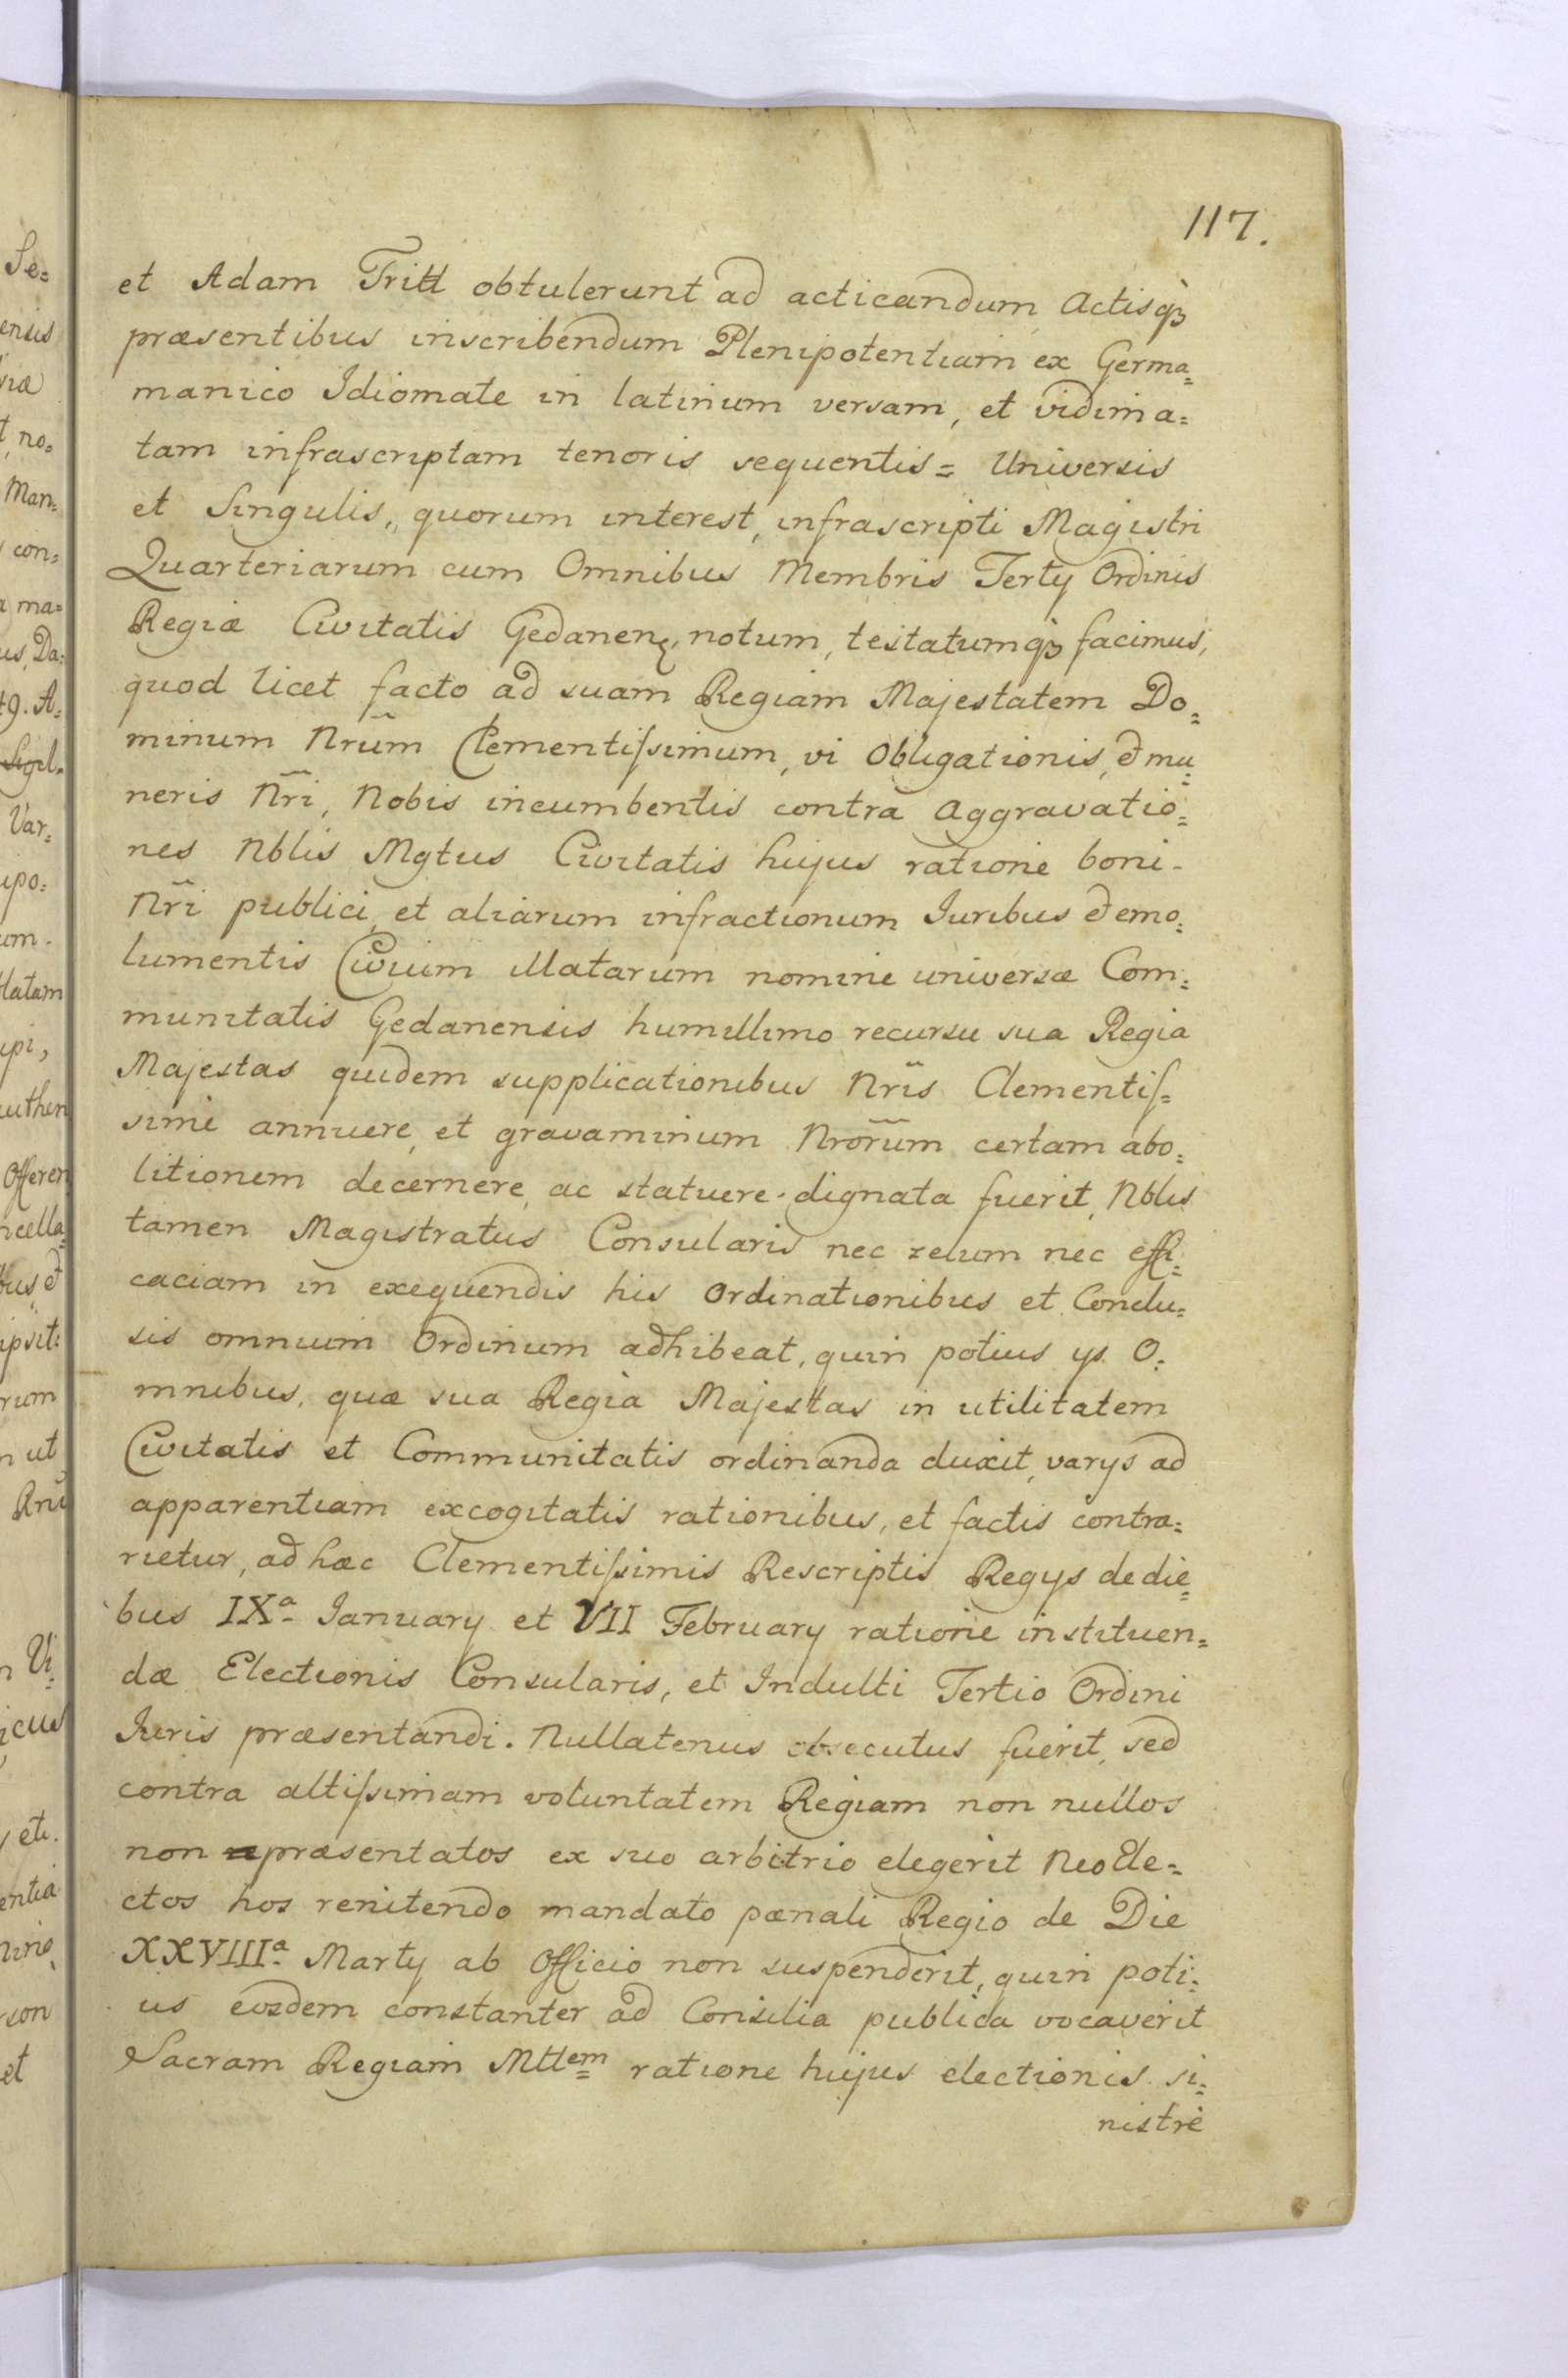 117.
et Adam Tritt obtulerunt ad acticandum Actisqꝫ
præsentibus inscribendum Plenipotentiam ex Germa=
manico Idiomate in latinum versam, et vidima=
tam infrascriptam tenoris sequentis = Universis
et Singulis, quorum interest, infrascripti Magistri
Quarteriarum cum Omnibus Membris Tertÿ Ordinis
Regiæ Civitatis Gedanen, notum, testatumqꝫ facimus,
quod licet facto ad suam Regiam Majestatem Do=
minum Nrũm Clementiſsimum, vi Obligationis, & mu=
neris Nr̃i, Nobis incumbentis contra Aggravatio=
nes Nblis Mgtus Civitatis hujus ratione boni
Nr̃i publici, et aliarum infractionum Iuribus & emo=
lumentis Civium illatarum nomine universæ Com=
munitatis Gedanensis humillimo recursu sua Regia
Majestas quidem supplicationibus Nr̃is Clementiſ=
sime annuere, et gravaminum Nrõrum certam abo=
litionem decernere, ac statuere dignata fuerit, Nblis
tamen Magistratus Consularis nec zelum nec effi=
caciam in exequendis his Ordinationibus et Conclu=
sis omnium Ordinum adhibeat, quin potius ys O=
mnibus, quæ sua Regia Majestas in utilitatem
Civitatis et Communitatis ordinanda duxit, varÿs ad
apparentiam excogitatis rationibus, et factis contra=
rietur, ad hæc Clementiſsimis Rescriptis Regÿs de die=
bus IXª Ianuarÿ et VII Februarÿ ratione instituen=
dæ Electionis Consularis, et Indulti Tertio Ordini
Iuris præsentandi. Nullatenus obsecutus fuerit, sed
contra altiſsimam voluntatem Regiam non nullos
non præsentatos ex suo arbitrio elegerit Neo Ele=
ctos hos renitendo mandato pænali Regio de Die
XXVIIIª Martÿ ab Officio non suspenderit, quin poti=
us eosdem constanter ad Consilia publica vocaverit
Sacram Regiam Mttem ratione hujus electionis si=
nistre
Se=
ensis
no=
Man=
con=
ma=
us, Da=
A=
Sigil=
Var=
ipo=
um
latam
ipi,
authen
Offeren
ncella=
bus &
ipsit:
rum
ut
Vi=
icus
et
entia
con
et